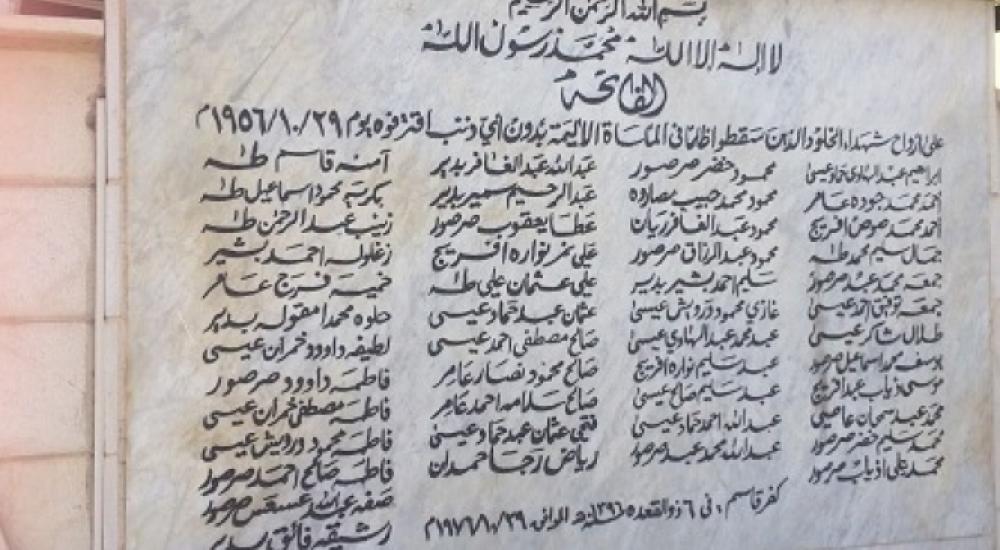 بسم الله الرحمن الرحيم
لا اله الا الله محمد رسول الله
الفاتحة
على ارواح شهداء الخلود الذين سقطوا ظلما في المأساة الاليمة بدون اي ذنب اقترفوه يوم ١٩٥٦/١٠/٢٩م
ابراهيم عبد الهادي حماد عيسى
احمد محمد جوده عامر
احمد محمد افريج
جمال سليم محمد طه
جمعه محمد عبد صرصور
جمعه توفيق احمد عيسى
طلال شاكر عيسى
يوسف محمد اسماعيل صرصور
موسى ذياب عبد افريج
محمد عبد سمحان عاصي
محمد سليم خضر صرصور
محمد علي ذياب صرصور
محمود خضر صرصور
محمود محمد حبيب
محمود عبد الغافر ريان
محمود عبد الرزاق صرصور
سليم احمد بشير بدير
غازي محمود درويش عيسى
عبد محمد عبد الهادي عيسى
عبد سليم نواره افريج
عبد سليم صالح عيسى
عبد الله احمد حماد عيسى
عبد الله محمد عبد صرصور
عبد الله عبد الغافر بدير
عبد الرحيم سمير بدير
عطا يعقوب صرصور
علي نمر نواره افريج
علي عثمان علي طه
عثمان عبد حماد عيسى
صالح مصطفى احمد عيسى
صالح محمود نصار عامر
صالح سلامه احمد عامر
فتحي عثمان عبد حماد عيسى
رياض رجا حمدان
آمنه قاسم طه
بكريه محمود اسماعيل طه
زينب عبد الرحمن طه
زغلوله احمد بشير
خميسه فرج عامر
حلوه محمد بدير
لطيفه داوود عيسى
فاطمه داوود صرصور
فاطمه مصطفى عيسى
فاطمه محمود درويش عيسى
فاطمه صالح احمد صرصور
صفه عبد الله صرصور
رشيقه فائق بدير
كفر قاسم : في ٦ ذو القعده ١٣٩٦هـ الموافق ١٩٧٦/١٠/٢٩م